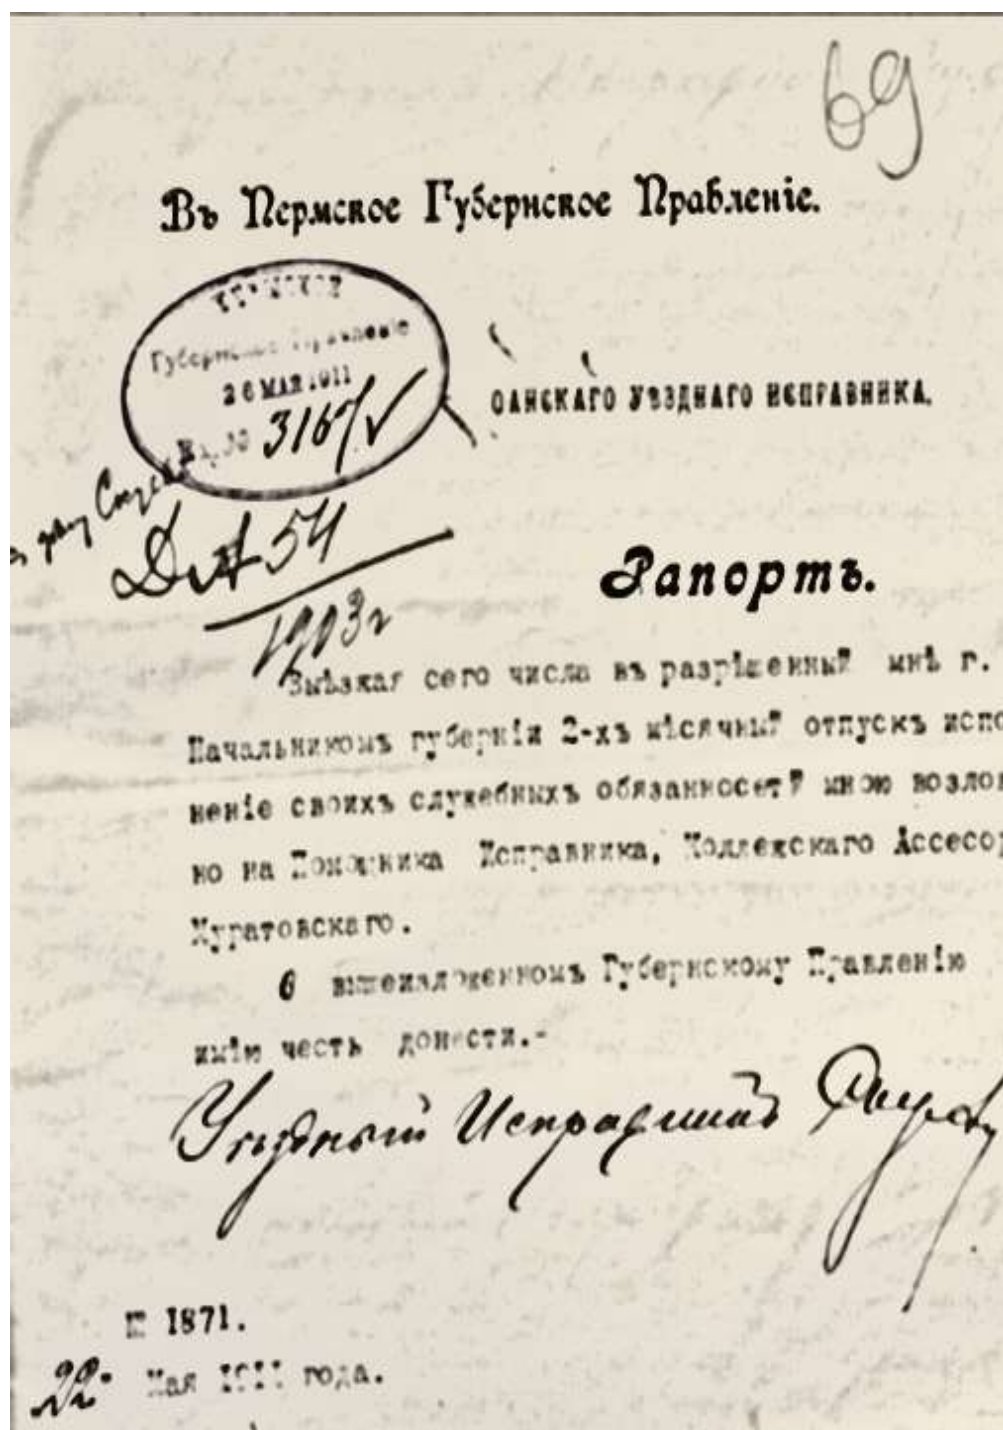 69
Въ Пермское Губернское Правленіе.
Губернское Правленіе
26 МАЯ 1911
3167
ОАНСКАГО УѢЗДНАГО ИСПРАВНИКА.
Д А 54
1903г
Рапортъ.
Выѣзжая сего числа въ разрѣшенный мнѣ г.
Начальникомъ губерніи 2-хъ мѣсячный отпускъ испо
неніе своихъ служебныхъ обязанносетй мною возло
но на Помощника Исправника, Коллежскаго Ассесор
Куратовскаго.
О вышеизложенномъ Губернскому Правленію
имѣю честь донести.-
Уѣздный Исправникъ
№ 1871.
22 Мая 1911 года.